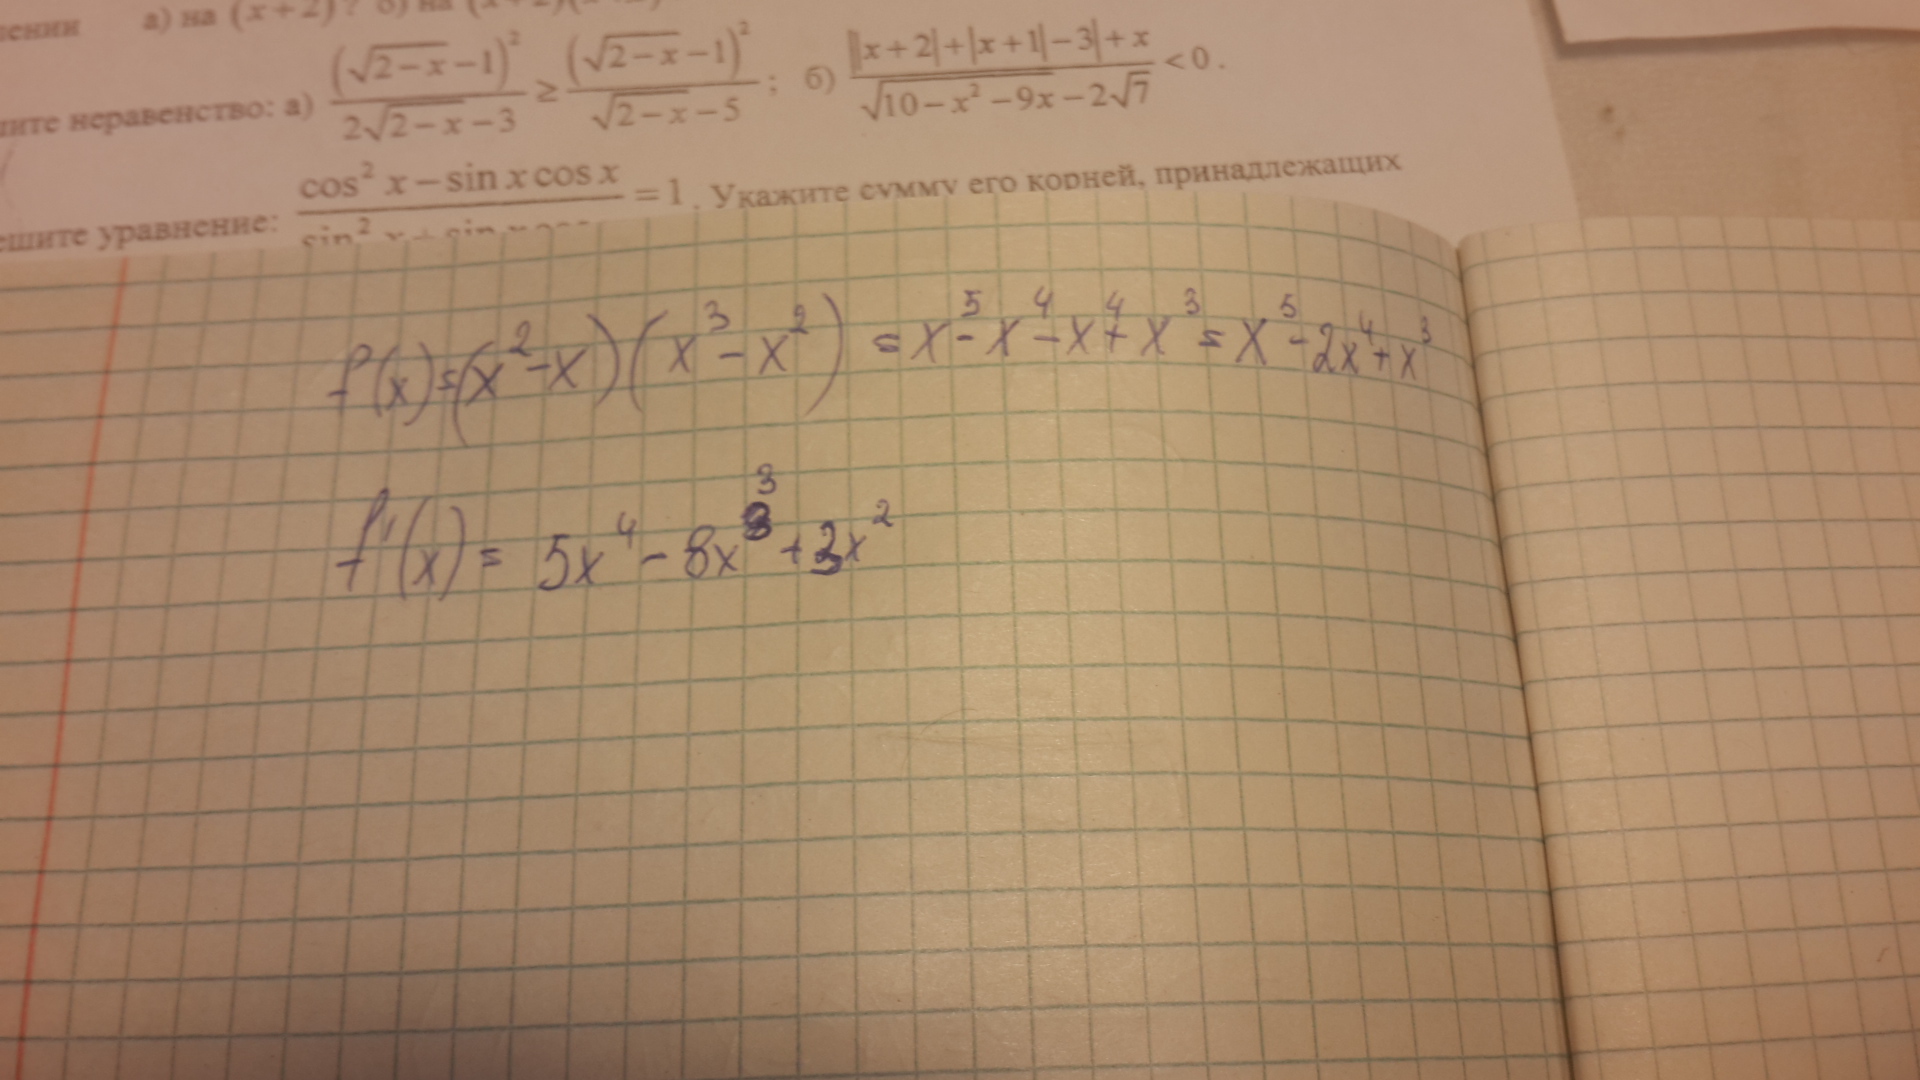 а) на (x+2)? б) на
неравенство: а) (√(2−x)−1)²/(2√(2−x)−3) ≥ (√(2−x)−1)²/(√(2−x)−5); б) (||x+2|+|x+1|−3|+x)/(√(10−x²−9x)−2√7) <0.
уравнение: (cos² x−sin x cos x)/(sin² x + sin x cos) =1. Укажите сумму его корней, принадлежащих
f(x)=(x²-x)(x³-x²) = x⁵-x⁴-x⁴+x³ = x⁵-2x⁴+x³
f'(x) = 5x⁴ - 8x³ + 3x²